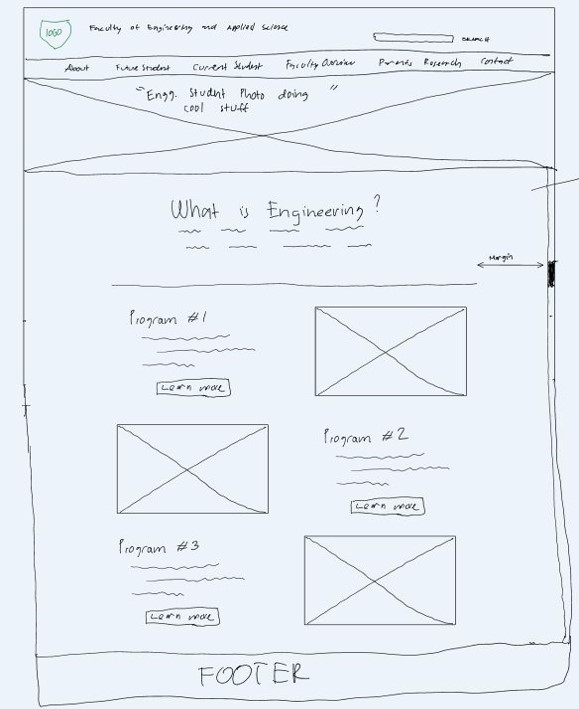 LOGO
Faculty of Engineering and Applied Science
SEARCH
About Future Student Current Student Faculty Overview Parents Research Contact
"Engg. Student Photo doing "
cool stuff
What is Engineering?
Margin
Program #1
Learn more
Program #2
Learn more
Program #3
Learn more
FOOTER